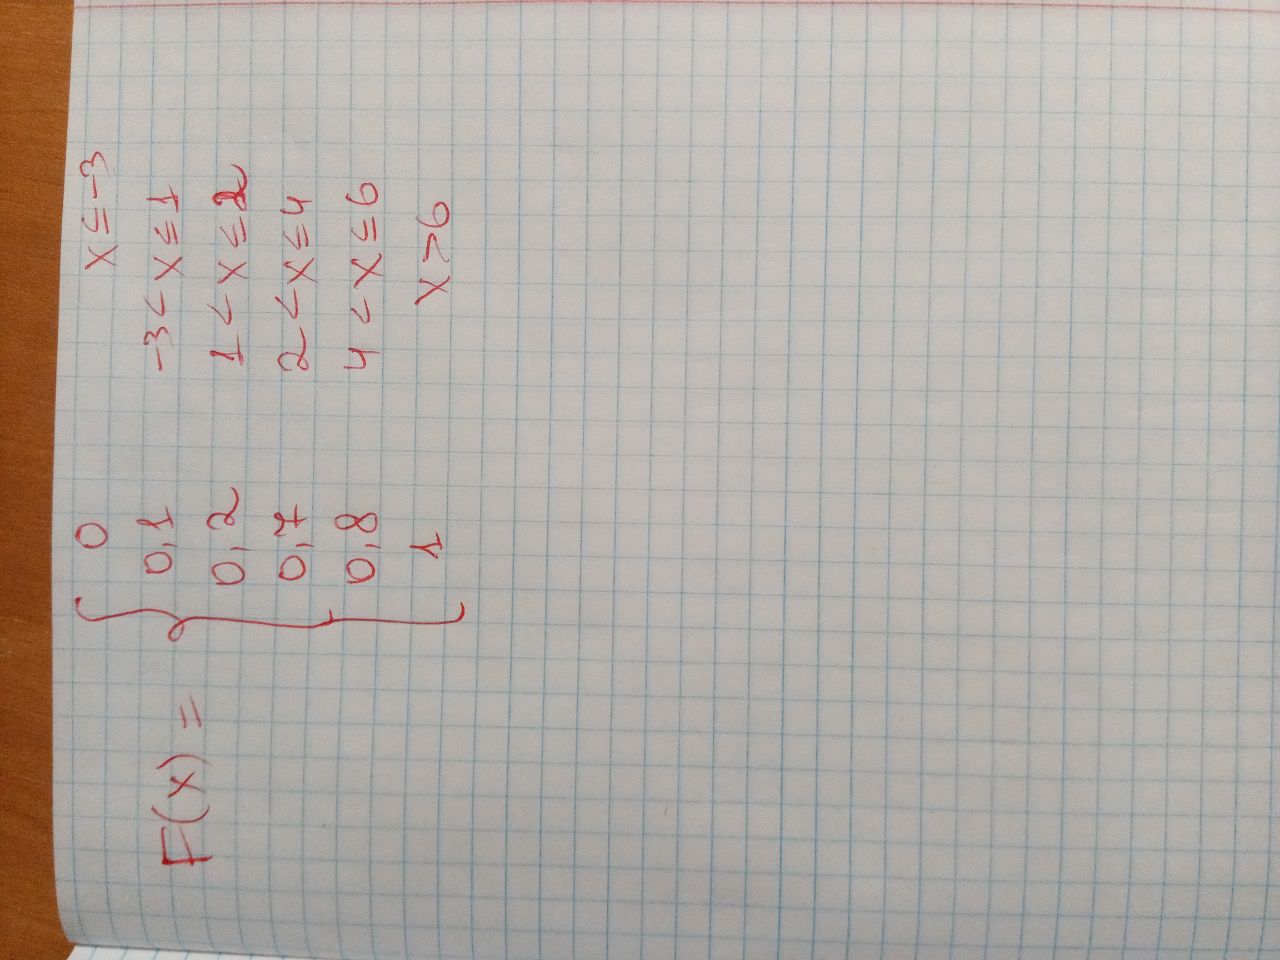 0 x ≤ -3
0,1 -3 < x ≤ 1
F(x) =
0,2 1 < x ≤ 2
0,7 2 < x ≤ 4
0,8 4 < x ≤ 6
1 x > 6